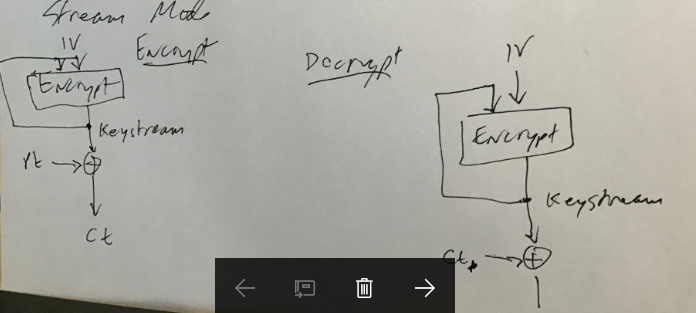 Stream Mode
Encrypt
IV
Encrypt
Keystream
Pt
Ct
Decrypt
IV
Encrypt
Keystream
Ct